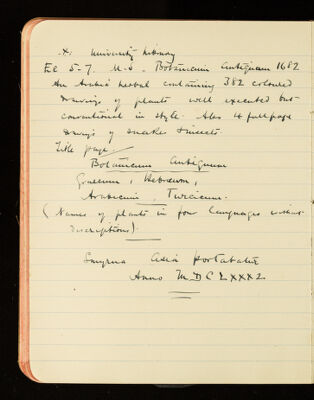 x. University Library
Ee 5-7. M.S. Botanicum Antiquum 1682
An Arabic herbal containing 382 coloured
drawings of plants well executed but
conventional in style. Also 14 full page
drawings of snakes & insects
Title page
Botanicum Antiquum
Graecum, Hebraeum,
Arabicum Turcicum.
(Names of plants in four languages without
descriptions)
Smyrna Asia portabatur
Anno MDCLXXXII